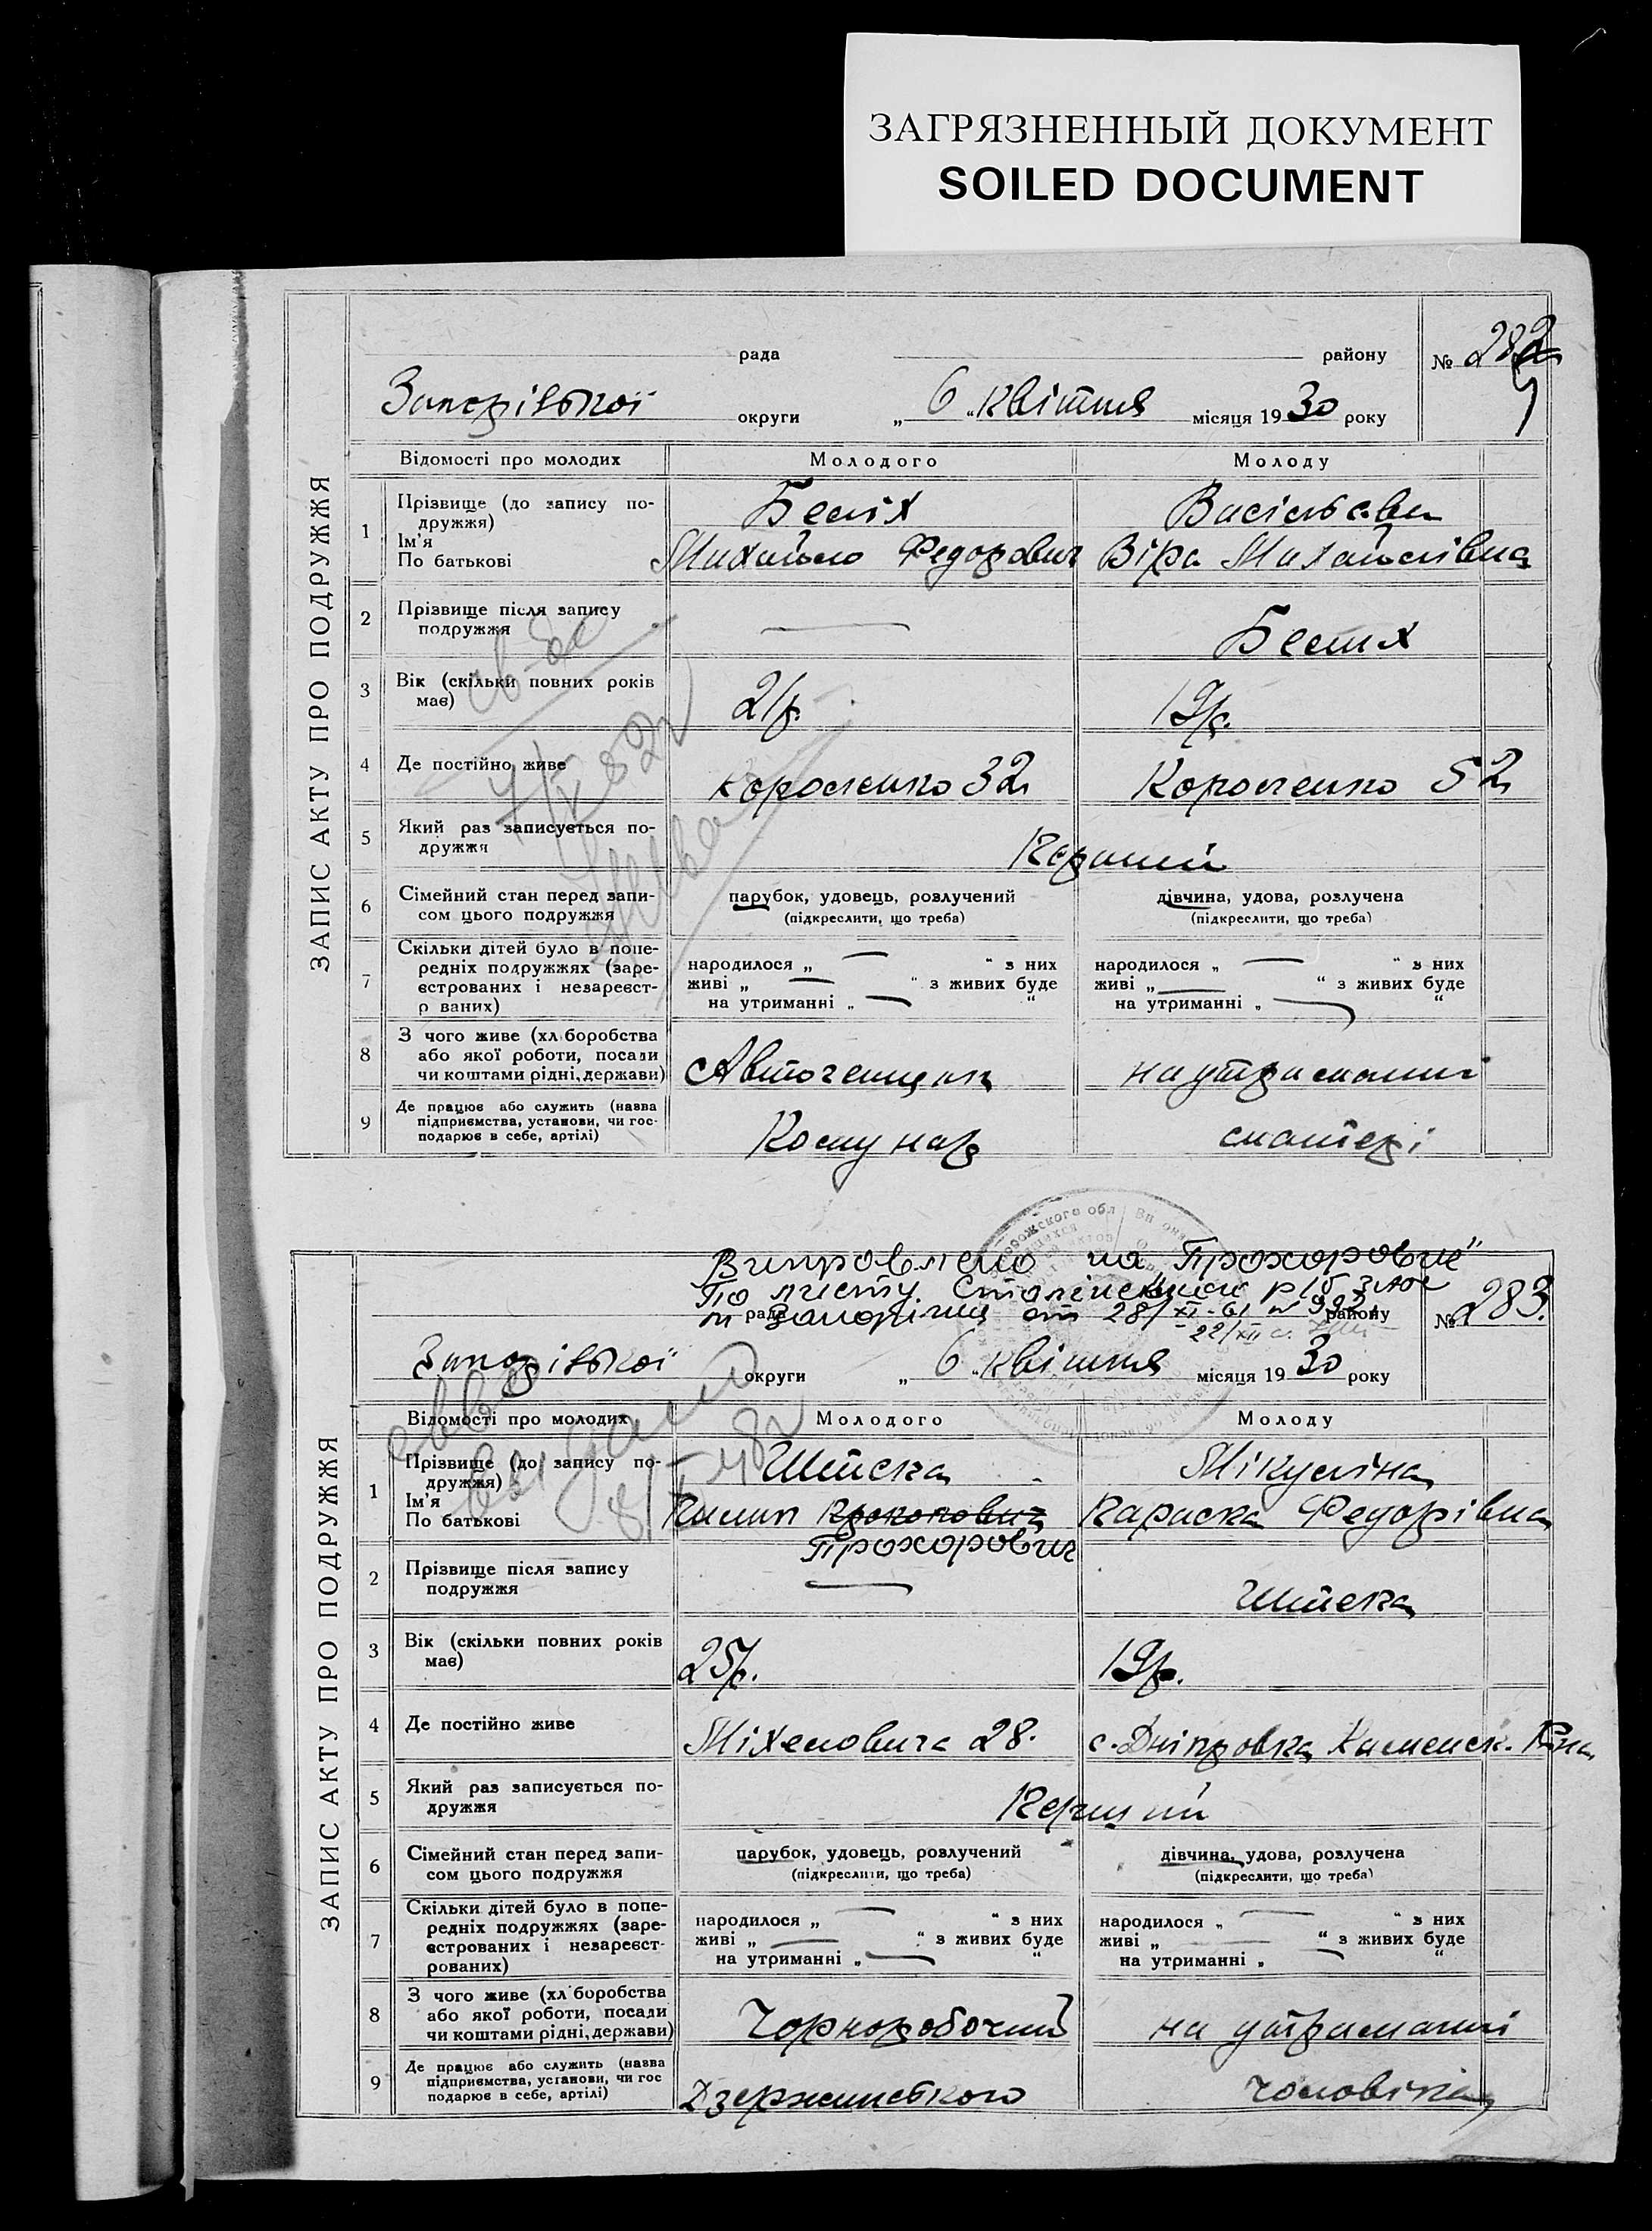 ЗАГРЯЗНЕННЫЙ ДОКУМЕНТ
SOILED DOCUMENT
ЗАПИС АКТУ ПРО ПОДРУЖЖЯ
рада району № 282
Запорізької округи „ 6 “ квітня місяця 1930 року
Відомості про молодих Молодого Молоду
1 Прізвище (до запису по-
дружжя)
Ім'я
По батькові
Белих
Михайло Федорович
Васільєва
Віра Михайлівна
2 Прізвище після запису
подружжя
— Белих
3 Вік (скільки повних років
має)
21 р. 19 р.
4 Де постійно живе Короленко 32 Короленко 52
5 Який раз записується по-
дружжя
Перший
6 Сімейний стан перед запи-
сом цього подружжя
парубок, удовець, розлучений
(підкреслити, що треба)
дівчина, удова, розлучена
(підкреслити, що треба)
7 Скільки дітей було в попе-
редніх подружжях (заре-
єстрованих і незареєст-
р ваних)
народилося „ — “ з них
живі „ — “ з живих буде
на утриманні „ — “
народилося „ — “ з них
живі „ — “ з живих буде
на утриманні „ — “
8 З чого живе (хл боробства
або якої роботи, посади
чи коштами рідні, держави)
на утриманні
9 Де працює або служить (назва
підприємства, установи, чи гос-
подарює в себе, артілі)
Комунар
матері
ЗАПИС АКТУ ПРО ПОДРУЖЖЯ
Виправлено на "Прохорович"
По листу р/б ЗАГС
м Запоріжжя от 28/XI-61 № 992
22/XII
рада району № 283
Запорізької округи „ 6 “ квітня місяця 1930 року
Відомості про молодих Молодого Молоду
1 Прізвище (до запису по-
дружжя)
Ім'я
По батькові
Шпека
Пилип Прокопович
Прохорович
Мікуліна
Параска Федорівна
2 Прізвище після запису
подружжя
— Шпека
3 Вік (скільки повних років
має)
25 р. 19 р.
4 Де постійно живе Міхеловича 28. с. Дніпровка Каменск. Р-на
5 Який раз записується по-
дружжя
Перший
6 Сімейний стан перед запи-
сом цього подружжя
парубок, удовець, розлучений
(підкреслити, що треба)
дівчина, удова, розлучена
(підкреслити, що треба)
7 Скільки дітей було в попе-
редніх подружжях (заре-
єстрованих і незареєст-
рованих)
народилося „ — “ з них
живі „ — “ з живих буде
на утриманні „ — “
народилося „ — “ з них
живі „ — “ з живих буде
на утриманні „ — “
8 З чого живе (хл боробства
або якої роботи, посади
чи коштами рідні, держави)
Чорноробочий
на утриманні
9 Де працює або служить (назва
підприємства, установи, чи гос
подарює в себе, артілі)
Дзержинського
чоловіка